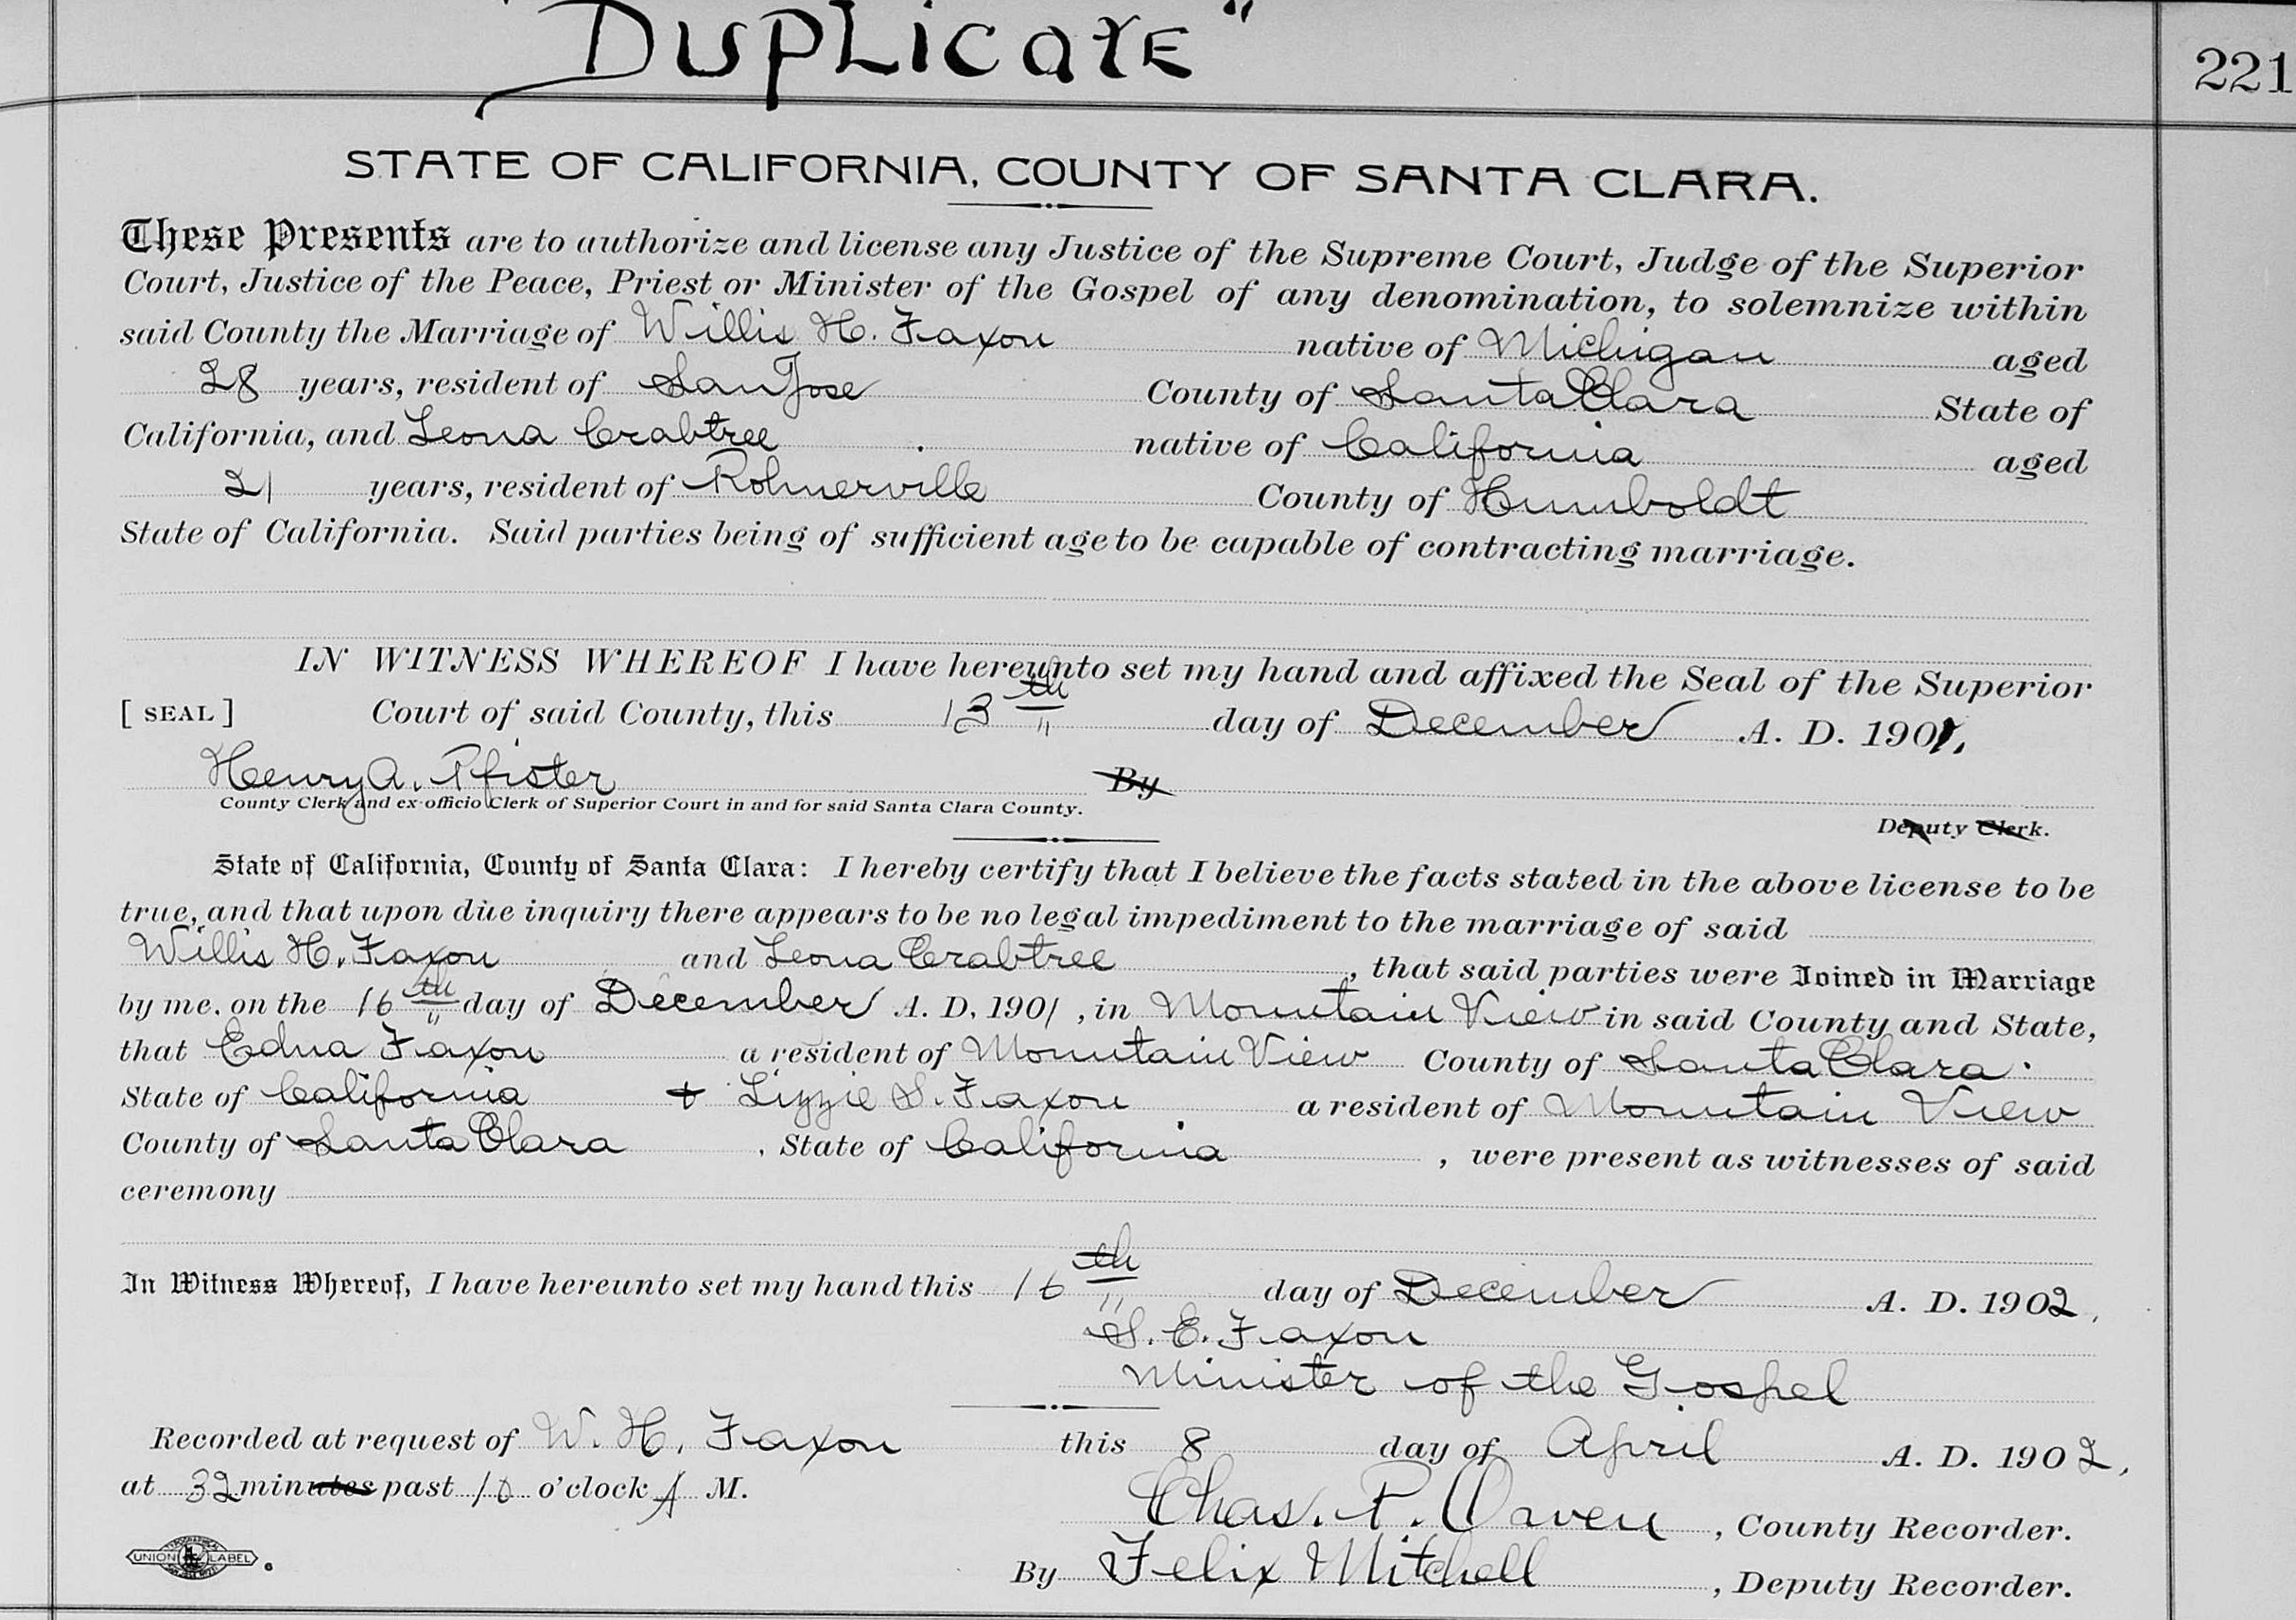 "DUPLICATE"
221
STATE OF CALIFORNIA, COUNTY OF SANTA CLARA.
These Presents are to authorize and license any Justice of the Supreme Court, Judge of the Superior
Court, Justice of the Peace, Priest or Minister of the Gospel of any denomination, to solemnize within
said County the Marriage of Willis H. Faxon native of Michigan aged
28 years, resident of San Jose County of Santa Clara State of
California, and Leona Crabtree native of California aged
21 years, resident of Rohnerville County of Humboldt
State of California. Said parties being of sufficient age to be capable of contracting marriage.
IN WITNESS WHEREOF I have hereunto set my hand and affixed the Seal of the Superior
[SEAL] Court of said County, this 13th day of December A. D. 1901.
Henry A. Pfister By
County Clerk and ex-officio Clerk of Superior Court in and for said Santa Clara County.
Deputy Clerk.
State of California, County of Santa Clara: I hereby certify that I believe the facts stated in the above license to be
true, and that upon due inquiry there appears to be no legal impediment to the marriage of said
Willis H. Faxon and Leona Crabtree, that said parties were Joined in Marriage
by me, on the 16th day of December A. D. 1901, in Mountain View in said County and State,
that Edna Faxon a resident of Mountain View County of Santa Clara.
State of California + Lizzie S. Faxon a resident of Mountain View
County of Santa Clara, State of California, were present as witnesses of said
ceremony
In Witness Whereof, I have hereunto set my hand this 16th day of December A. D. 1902.
S. E. Faxon
Minister of the Gospel
Recorded at request of W. H. Faxon this 8 day of April A. D. 1902.
at 32 minutes past 10 o'clock A M.
Chas. P. Owen, County Recorder.
UNION LABEL 6
By Felix Mitchell, Deputy Recorder.